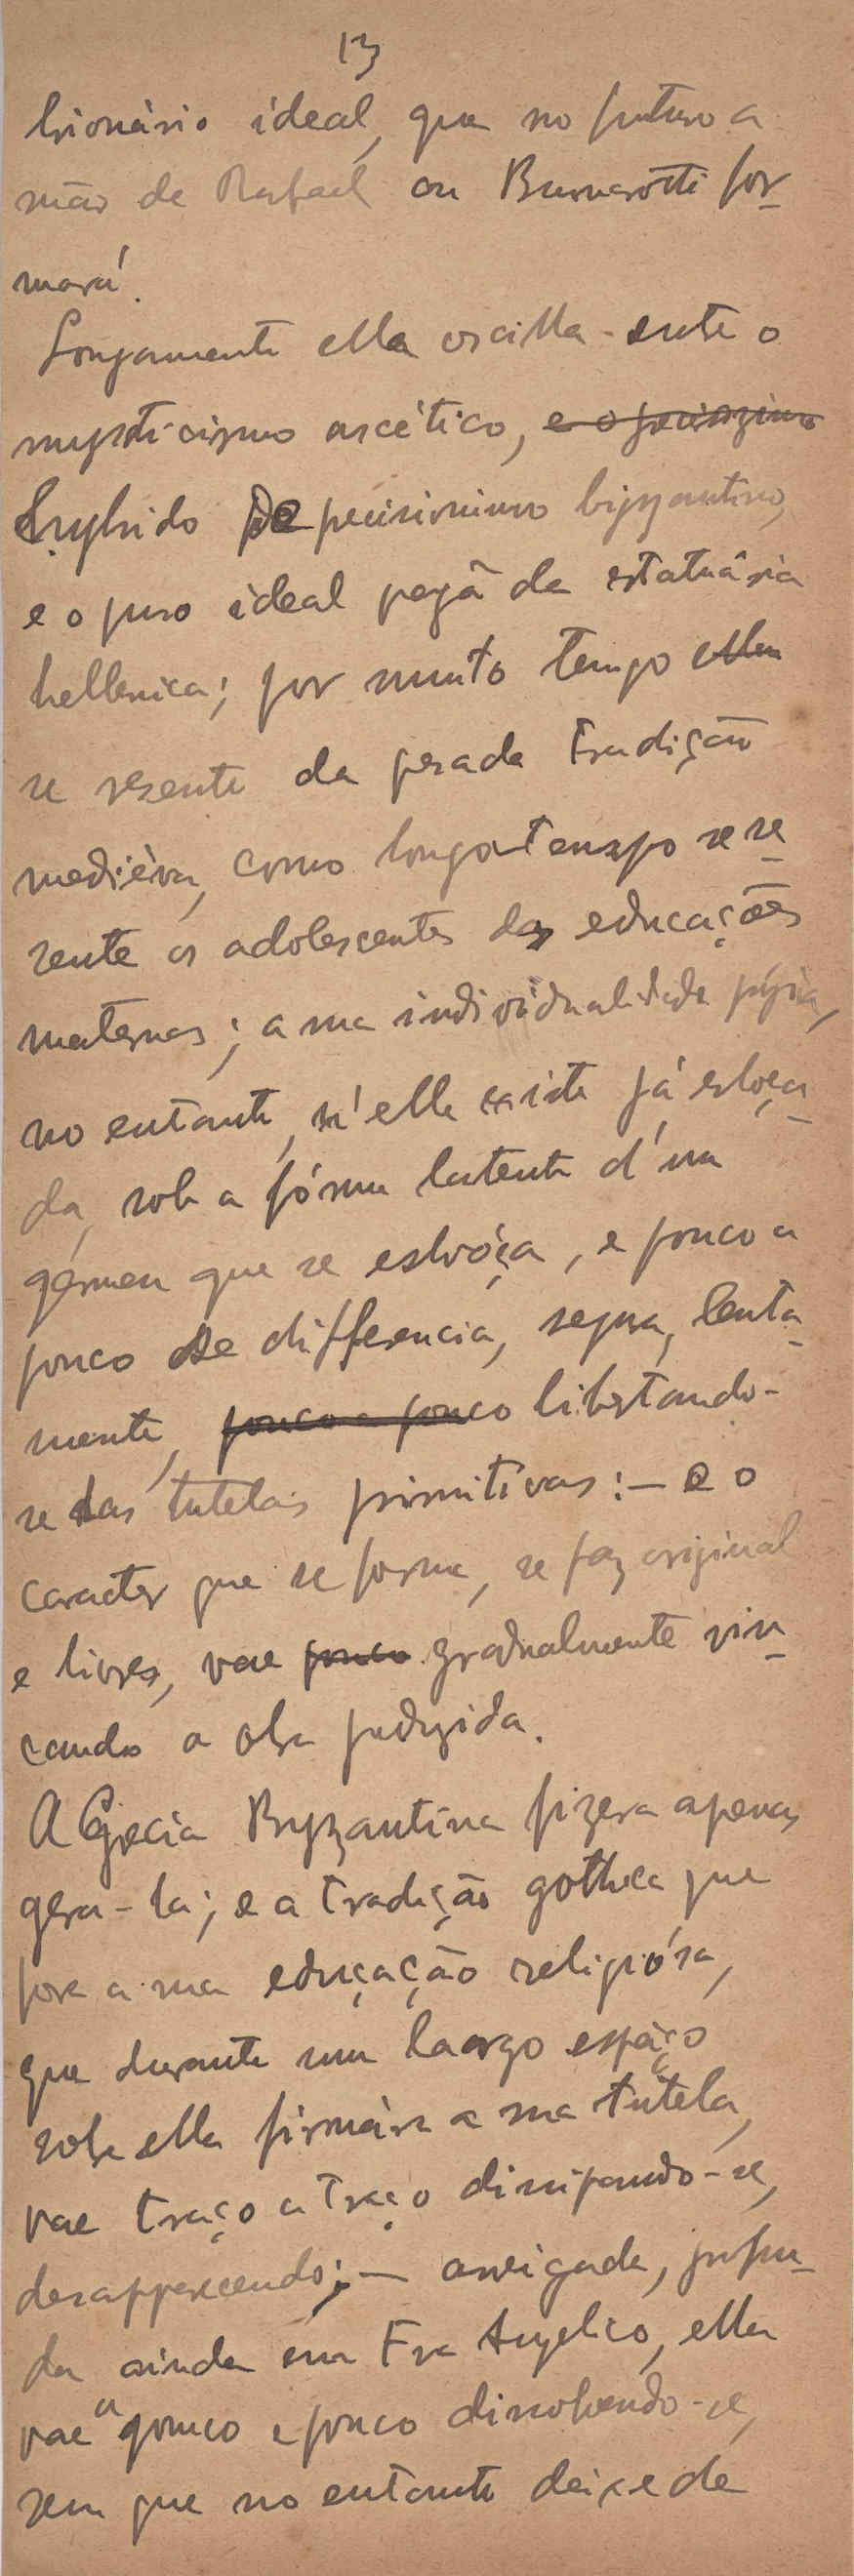 13
brionário ideal, que no futuro a
mão de Rafael ou Buonarotti for-
mará.
Longamente ella oscilla entre o
mysticismo ascético, e o
hybrido de precisionismo bizantino,
e o puro ideal pagã da estatuária
hellenica; por muito tempo ella
se resente da pesada tradição
mediéva, como longo tempo se re-
sente os adolescentes das educações
maternas; a sua individualidade própria,
no entanto, n'elle existe já esboça-
da, sob a fórma latente d'um
gérmen que se esbróça, e pouco a
pouco se differencia, segura, lenta-
mente, pouco a pouco libertando-
se das tutelas primitivas: — e o
caracter que se forma, se faz original
e livre, vae pouco gradualmente vin-
cando a obra produzida.
A Grecia Byzantina fizera apenas
gera-la; e a tradição gothica que
fora a sua educação religiósa,
que durante um laorgo espáço
sobre ella firmára a sua tutela,
vae traço a traço dissipando-se,
desapparecendo; — arreigada, profun-
da ainda em Fra Angelico, ella
vae a pouco e pouco dissolvendo-se,
sem que no entanto deixe de